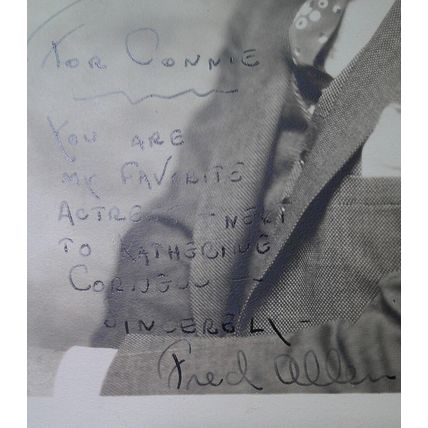 For Connie
You are
my favorite
actress – next
to Katherine
Cornell –
Sincerely –
Fred Allen